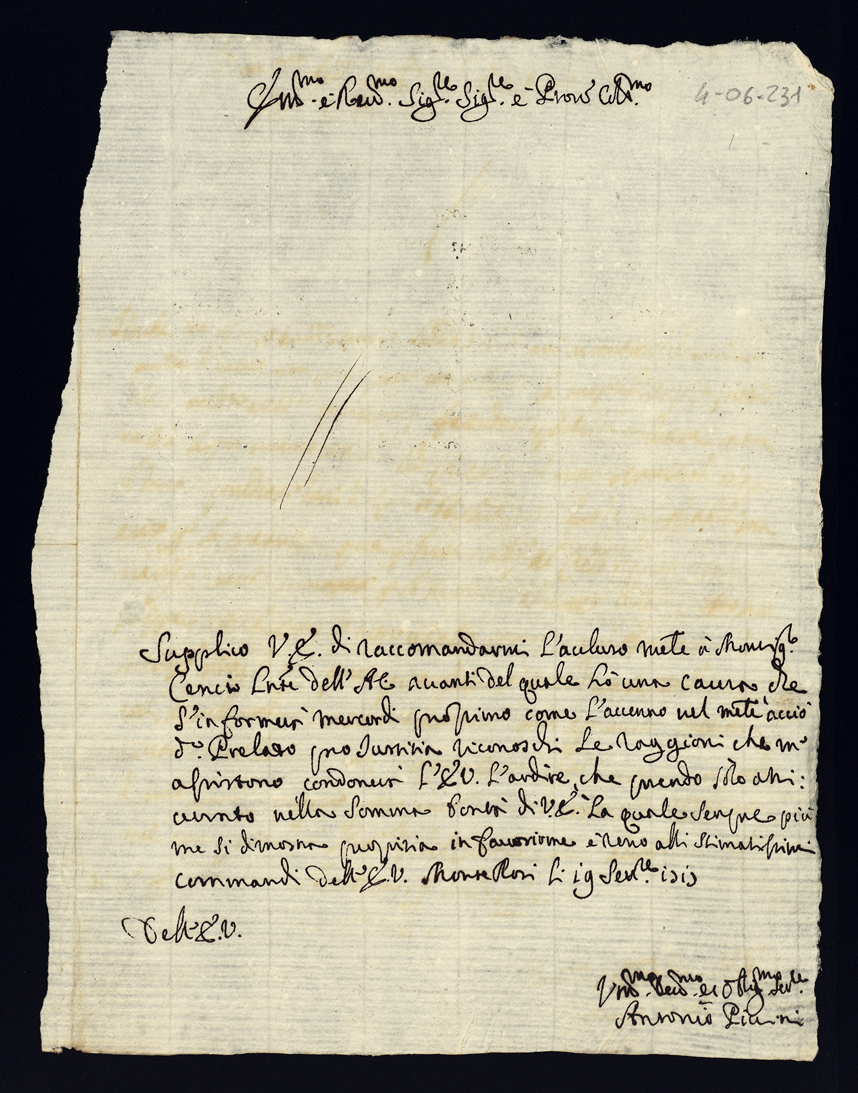 Ill.mo e Rev.mo Sig.re Sig.re e Prone Col.mo
4-06-231
Supplico V.E. di raccomandarmi l'acluso mete à Monsig.re
Cencio dell'AC avanti del quale hò una causa che
s'informerà mercordì prossimo come l'accenno nel mete acciò
d.o Prelato pro Iustitia riconoschi le raggioni che m'
assistono condonerà l'E.V. l'ardire che prendo sólo atti:
vivato nella somma bontà di V.E. la quale sempre più
me si dimostra propitia in favorirme e resto alli stimatissimi
commandi dell'E.V. Monte Rosi li 19
Dell'E.V.
Antonio Piccini